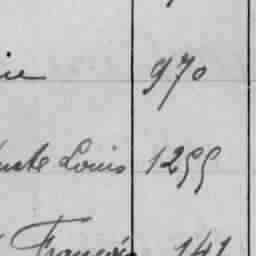 970
Louis 1255
François 141